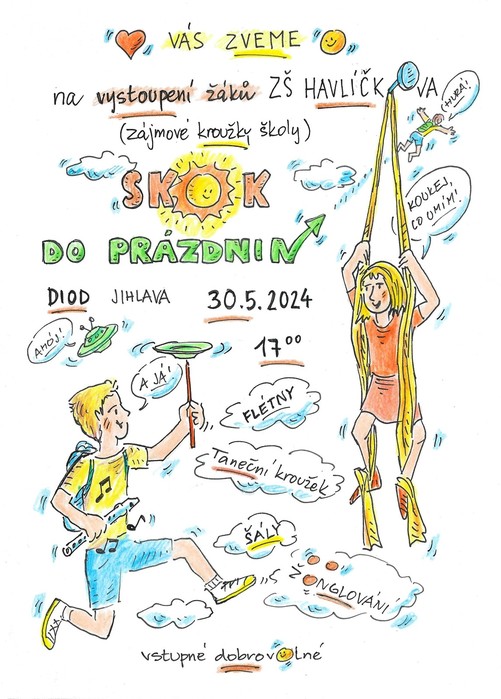 VÁS ZVEME
na vystoupení žáků ZŠ HAVLÍČKOVA
(zájmové kroužky školy)
HURÁ!
SKOK
DO PRÁZDNIN
KOUKEJ,
CO UMÍM!
DIOD JIHLAVA 30.5.2024
17⁰⁰
AHOJ!
A JÁ!
FLÉTNY
Taneční kroužek
ŠÁLY
ŽONGLOVÁNÍ
vstupné dobrovolné